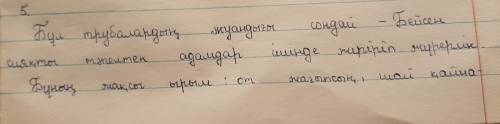 5.
Бұл трубалардың жуандығы сондай - Бейсен
сияқты адамдар ішінде жүгіріп жүрерлік.
Бұның жақсы ырым : от жағыпсың, шай қайна-